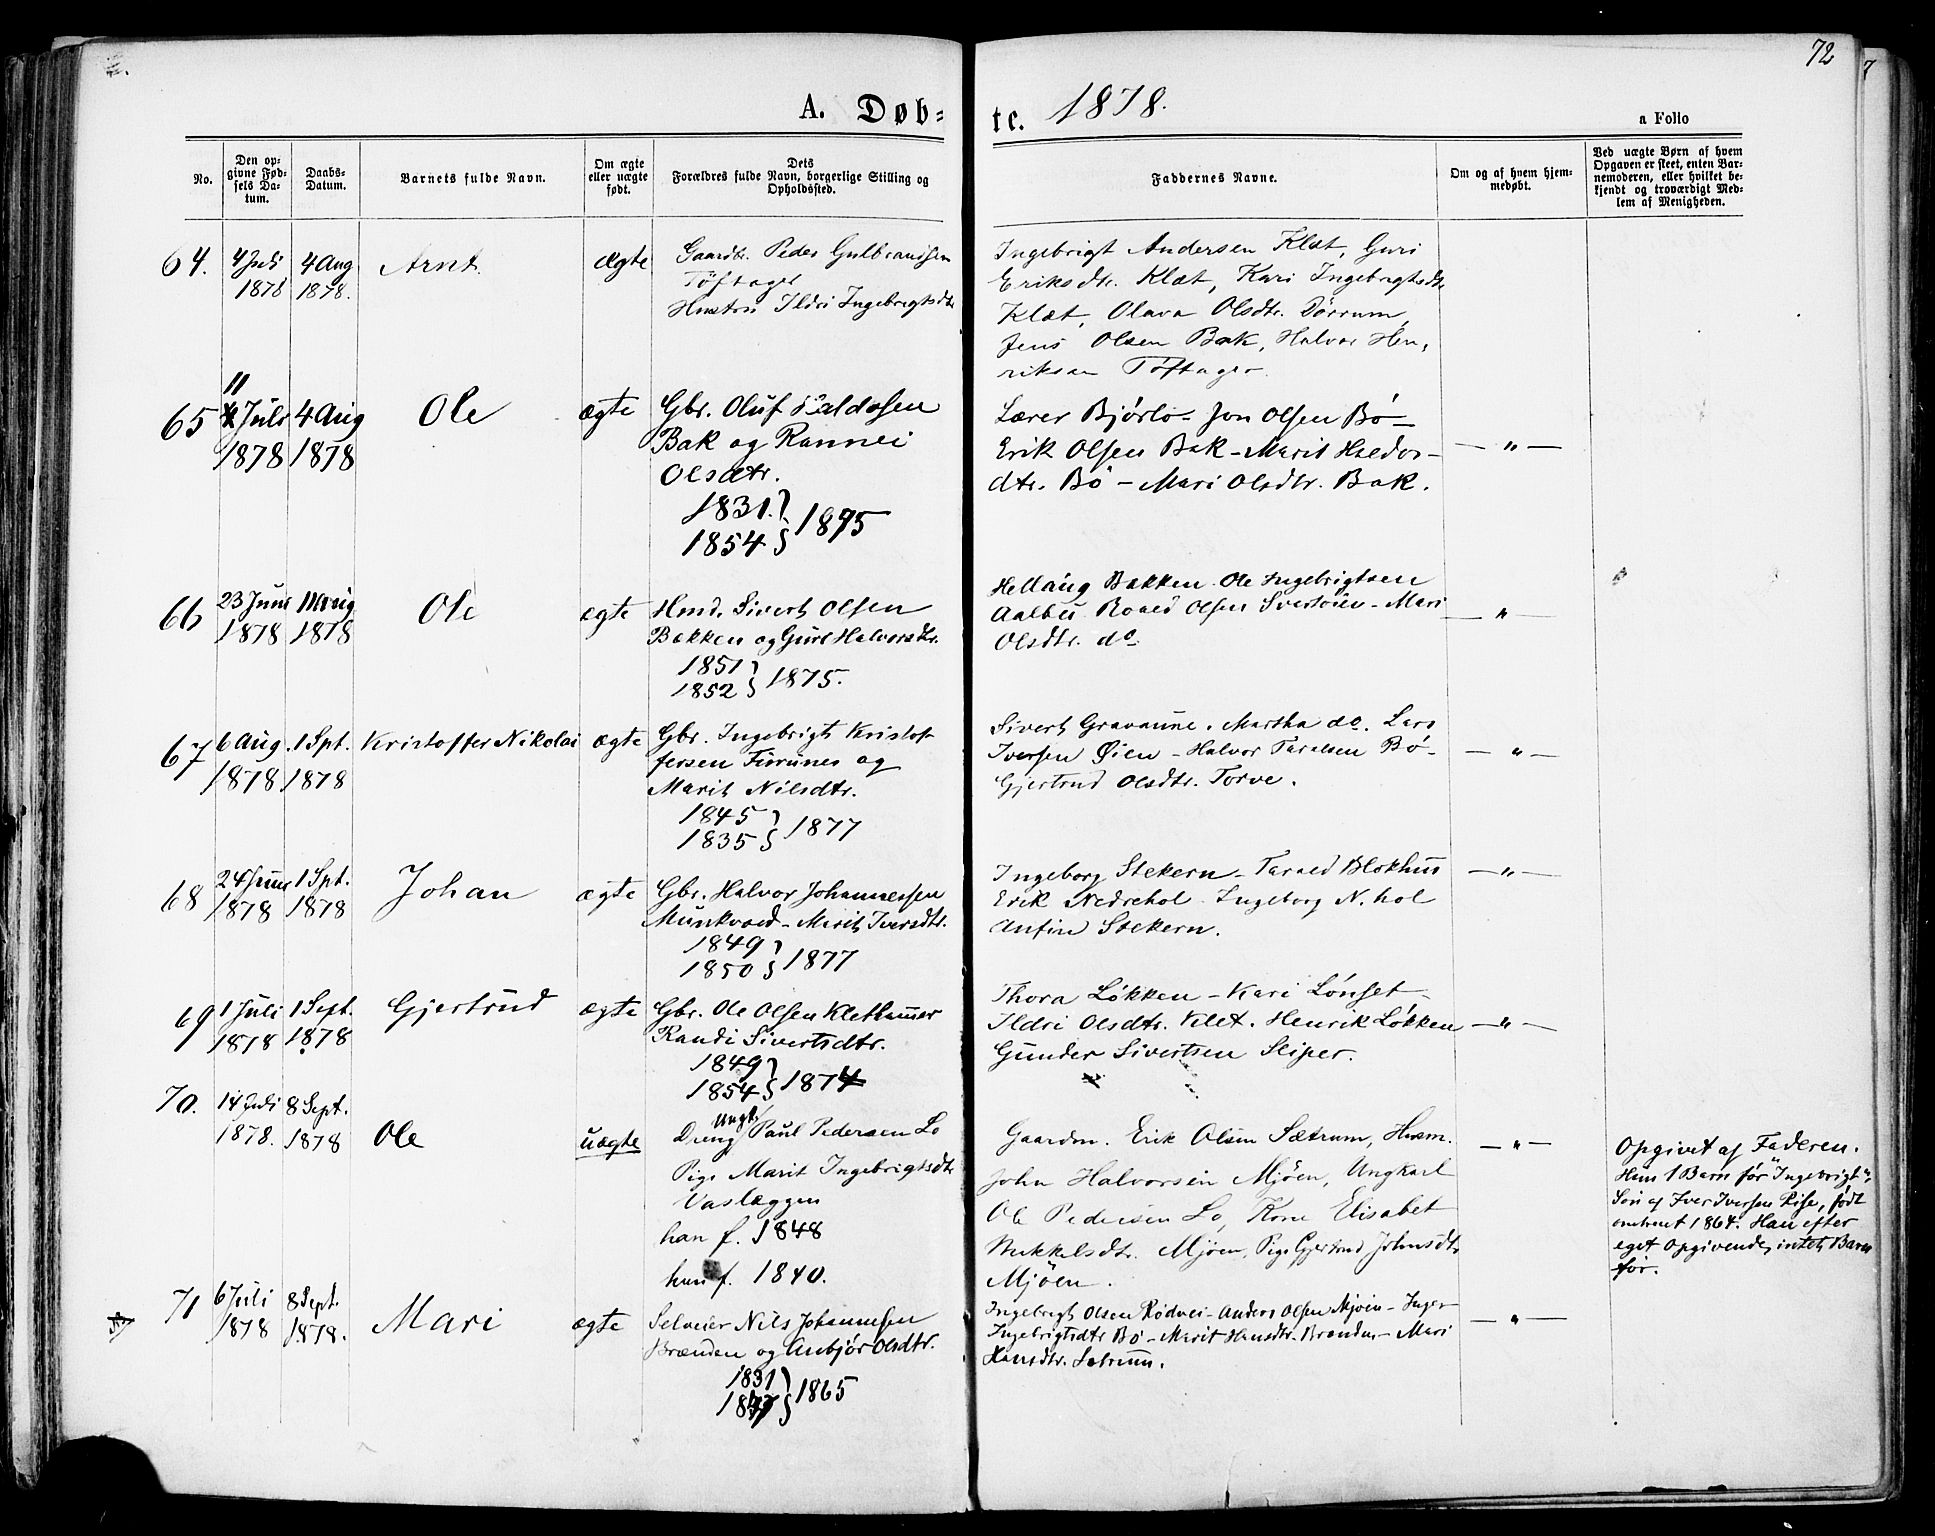 72
A. Døb=
te. 1878.
a Folio
No.
Den op=
givne Fød=
sels Da=
tum.
Daabs=
Datum.
Barnets fulde Navn.
Om ægte
eller uægte
født.
Dets
Forældres fulde Navn, borgerlige Stilling og
Opholdssted.
Faddernes Navne.
Om og af hvem hjem=
medøbt.
Ved uægte Børn af hvem
Opgaven er skeet, enten Bar=
nemoderen, eller hvilket be=
kjendt og troværdigt Med=
lem af Menigheden.
64.
4 Juli
1878
4 Aug
1878.
Arnt.
ægte
Gaardbr. Peder Gulbrandsen
Töftager
Hustru Ildri Ingebrigtsdtr
Ingebrigt Andersen Klæt, Guri
Eriksdtr. Klæt, Kari Ingebrigtsdtr
Klæt, Olava Olsdtr. Dörrum,
Jens Olsen Bak, Halvor Hen,
riksen Töftager.
65
11
Juli
1878
4 Aug
1878
Ole
ægte
Gbr. Oluf Haldosen
Bak og Rannei
Olsdtr.
1831.
1854 } 1875
Lærer Bjórlo - Jon Olsen Bó -
Erik Olsen Bak - Marit Haldor -
dtr. Bó - Mari Olsdtr. Bak.
— " —
66
23 Juni
1878
11 Aug
1878
Ole
ægte
Hmd. Sivert Olsen
Bakken og Guri Halvorsdtr.
1851
1852 } 1875.
Hellaug Bakken. Ole Ingebrigtsen
Aalbu. Roald Olsen - Mari
Olsdtr. do.
— " —
67
6 Aug.
1878
1 Spt.
1878
Kristoffer Nikolai
ægte
Gbr. Ingebrigt Kristof
fersen og
Marit Nilsdtr.
1845
1835 } 1877
Sivert Gravaune. Martha do. Lars
Iversen Øien - Halvor Taralsen Bó -
Gjertrud Olsdtr. Torve.
— " —
68
24 Juni
1878
1 Spt.
1878
Johan
ægte
Gbr. Halvor Johannessen
Munkvold - Marit Iversdtr.
1849
1850 } 1877
Ingeborg Stekern - Tarald Blokhus
Erik Nedrehol - Ingeborg N. hol
Anfin Stekern.
— " —
69
1 Juli
1878
1 Sept.
1878
Gjertrud
ægte
Gbr. Ole Olsen Klethammer
Randi Sivertsdtr.
1849
1854 } 1874
Thora Lókken - Kari Lónset -
Ildri Olsdtr. Klet. Henrik Lókken
Gunder Sivertsen Sliper.
— " —
70.
14 Juli
1878.
8 Sept.
1878
Ole
uægte
Ungk.
Dreng Paul Pedersen Lo
Pige Marit Ingebrigtsdtr
Vaslæggen
han f. 1848
hun f. 1840.
Gaardm. Erik Olsen Sætrum, Husm.
John Halvorsen Mjöen, Ungkarl
Ole Pedersen Lo, Kone Elisabet
Mikkelsdtr. Mjöen, Pige Gjertrud Johnsdtr
Mjöen.
— " —
Opgivet af Faderen.
Hun 1 Barn før "Ingebrigt",
Sön af Iver Iversen Rise, født
omtrent 1864. Han efter
eget Opgivende, intet Barn
før.
71
6 Juli
1878
8 Sept.
1878.
Mari
ægte
Selveier Nils Johannesen
Brænden og Anbjór Olsdtr.
1831
} 1865
Ingebrigt Olsen Rødvei - Anders Olsen Mjøen - Inger
Ingebrigtsdtr Bó - Marit Hansdtr. Brænden - Mari
Hansdtr. Sætrum.
— " —